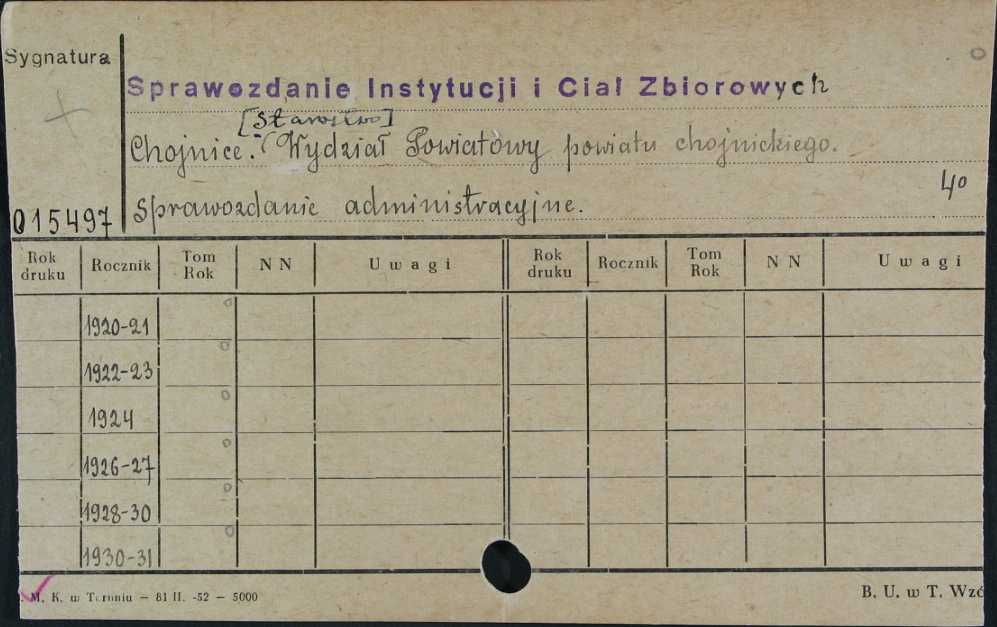 Sygnatura
Sprawozdanie Instytucji i Ciał Zbiorowych
[Starostwo]
Chojnice. Wydział Powiatowy powiatu chojnickiego.
4o
015497 Sprawozdanie administracyjne.
Rok druku Rocznik Tom Rok N N Uwagi Rok druku Rocznik Tom Rok N N Uwagi
1920-21
1922-23
1924
1926-27
1928-30
1930-31
. M. K. w Toruniu — 81 II. -52 — 5000
B. U. w T. Wzó